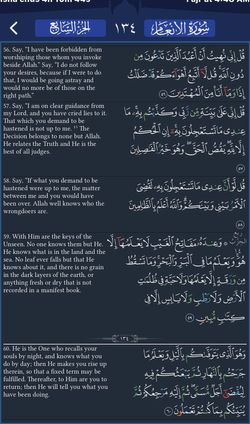 الجزء السابع
١٣٤
سورة الانعام
56. Say, "I have been forbidden from
worshiping those whom you invoke
beside Allah." Say, "I do not follow
your desires, because if I were to do
that, I would be going astray and
would no more be of those on the
right path."
قُلْ إِنِّي نُهِيتُ أَنْ أَعْبُدَ الَّذِينَ تَدْعُونَ مِن
دُونِ اللَّهِ قُل لَّا أَتَّبِعُ أَهْوَاءَكُمْ قَدْ ضَلَلْتُ
إِذًا وَمَا أَنَا مِنَ الْمُهْتَدِينَ ٥٦
57. Say, "I am on clear guidance from
my Lord, and you have cried lies to it.
That which you demand to be
hastened is not up to me. The
Decision belongs to none but Allah.
He relates the Truth and He is the
best of all judges.
قُلْ إِنِّي عَلَىٰ بَيِّنَةٍ مِّن رَّبِّي وَكَذَّبْتُم بِهِ مَا
عِندِي مَا تَسْتَعْجِلُونَ بِهِ إِنِ الْحُكْمُ
إِلَّا لِلَّهِ يَقُصُّ الْحَقَّ وَهُوَ خَيْرُ الْفَاصِلِينَ
٥٧
58. Say, "If what you demand to be
hastened were up to me, the matter
between me and you would have
been over. Allah well knows who the
wrongdoers are.
قُل لَّوْ أَنَّ عِندِي مَا تَسْتَعْجِلُونَ بِهِ لَقُضِيَ
الْأَمْرُ بَيْنِي وَبَيْنَكُمْ وَاللَّهُ أَعْلَمُ بِالظَّالِمِينَ
٥٨
59. With Him are the keys of the
Unseen. No one knows them but He.
He knows what is in the land and the
sea. No leaf ever falls but that He
knows about it, and there is no grain
in the dark layers of the earth, or
anything fresh or dry that is not
recorded in a manifest book.
وَعِندَهُ مَفَاتِحُ الْغَيْبِ لَا يَعْلَمُهَا إِلَّا
هُوَ وَيَعْلَمُ مَا فِي الْبَرِّ وَالْبَحْرِ وَمَا تَسْقُطُ
مِن وَرَقَةٍ إِلَّا يَعْلَمُهَا وَلَا حَبَّةٍ فِي ظُلُمَاتِ
الْأَرْضِ وَلَا رَطْبٍ وَلَا يَابِسٍ إِلَّا فِي
كِتَابٍ مُّبِينٍ ٥٩
١٣٤
60. He is the One who recalls your
souls by night, and knows what you
do by day; then He makes you rise up
therein, so that a fixed term may be
fulfilled. Thereafter, to Him are you to
return; then He will tell you what you
have been doing.
وَهُوَ الَّذِي يَتَوَفَّاكُم بِاللَّيْلِ وَيَعْلَمُ مَا
جَرَحْتُم بِالنَّهَارِ ثُمَّ يَبْعَثُكُمْ فِيهِ
لِيُقْضَىٰ أَجَلٌ مُّسَمًّى ثُمَّ إِلَيْهِ مَرْجِعُكُمْ ثُمَّ
يُنَبِّئُكُم بِمَا كُنتُمْ تَعْمَلُونَ ٦٠